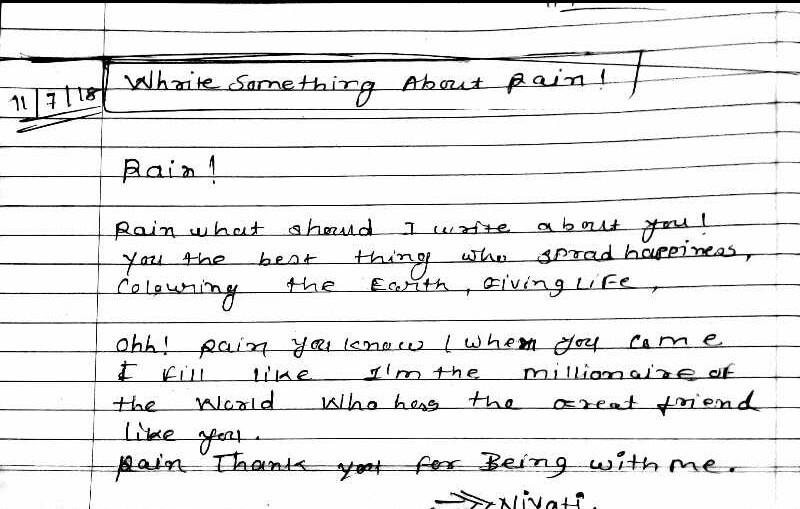 11/7/18
Whrite Something About Rain!
Rain!
Rain what should I write about you!
you the best thing who sprad happiness,
Colouring the Earth, Giving LiFe,
Ohh! Rain you know! when you come
I fill like I'm the millionaire of
the World Who has the Great friend
like you.
Rain Thank you for Being with me.
Niyati.